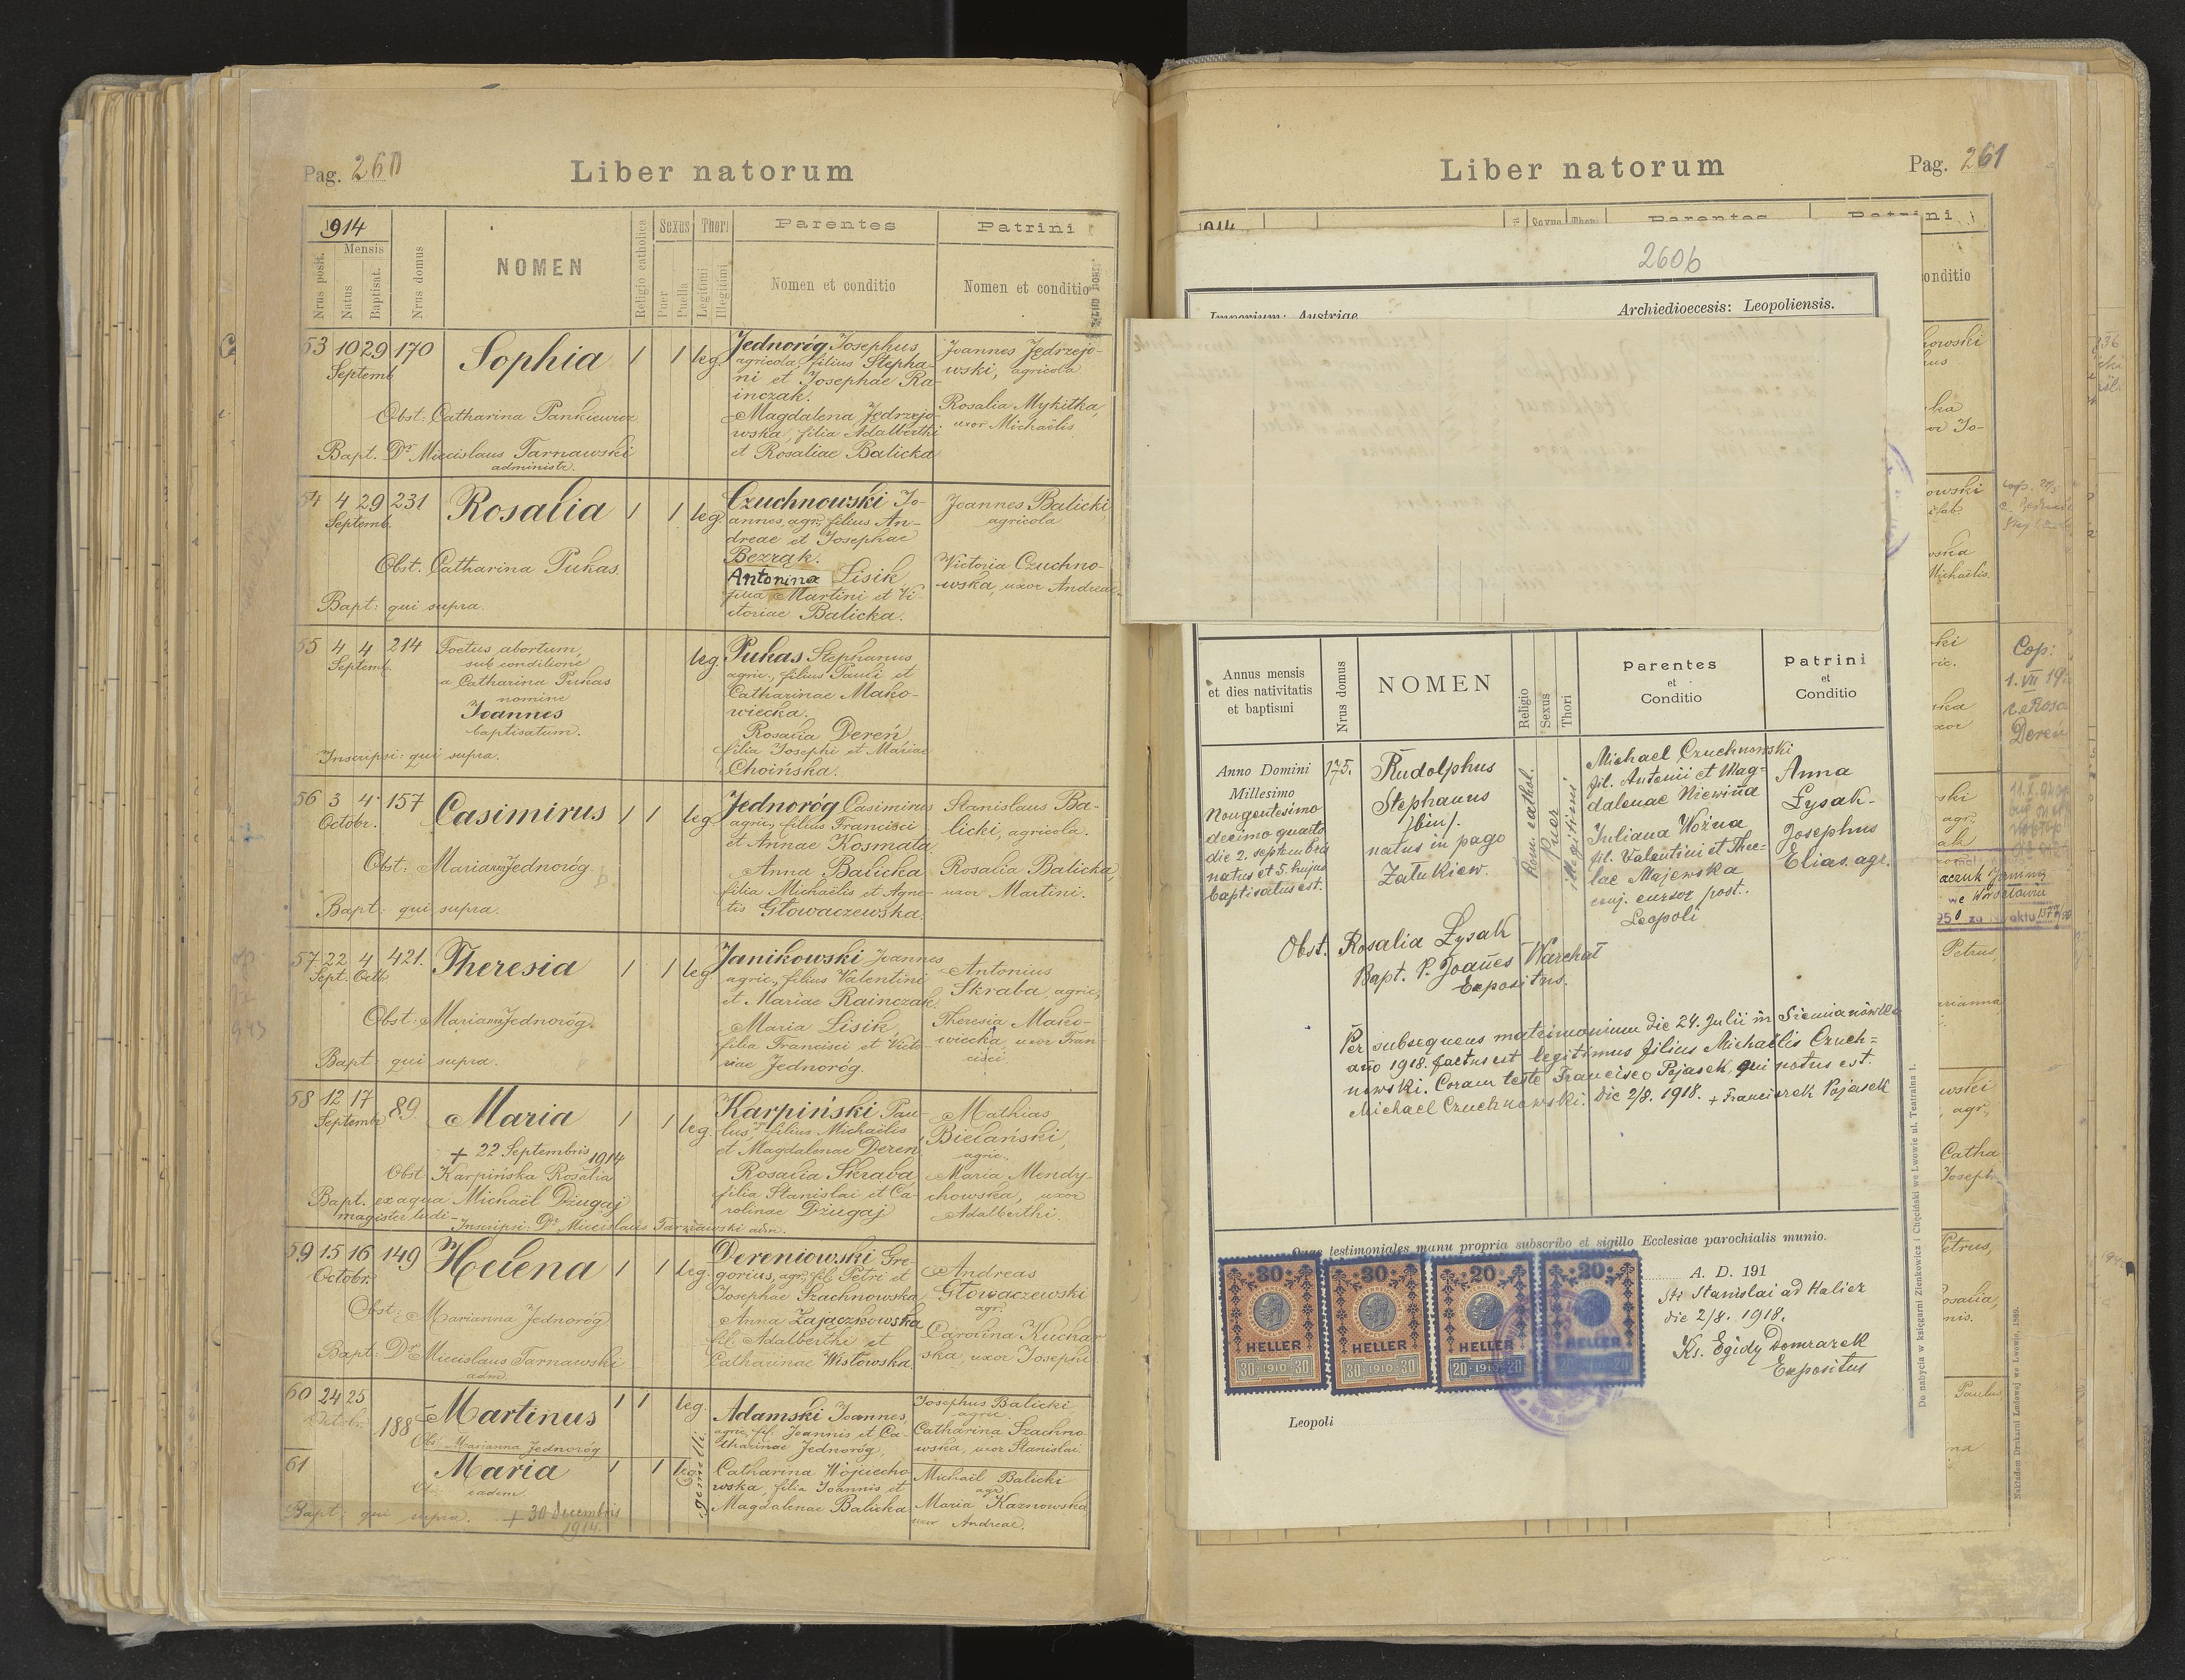 Pag. 260
Liber natorum
1914
Mensis
Nrus posit.
Natus
Baptisat.
Nrus domus
NOMEN
Religio catholica
Sexus
Puer
Puella
Thori
Legitimi
Illegitimi
Parentes
Nomen et conditio
Patrini
Nomen et conditio
53 10 29 170 Sophia 1 1 leg.
Septemb.
Obst: Catharina Pankiewicz
Bapt. Dr Miecislaus Tarnawski
administr.
Jednoróg Josephus
agricola, filius Stepha-
ni et Josephae Ra-
inczak.
Magdalena Jędrzejo-
wska, filia Adalberthi
et Rosaliae Balicka
Joannes Jędrzejo-
wski, agricola
Rosalia Mykitka,
uxor Michaëlis
54 4 29 231 Rosalia 1 1 leg.
Septemb.
Obst. Catharina Pukas.
Bapt: qui supra.
Czuchnowski Jo-
annes, agr., filius An-
dreae et Josephae
Bezrąk.
Antonina Lisik
filia Martini et Vi-
ctoriae Balicka.
Joannes Balicki
agricola
Victoria Czuchno-
wska, uxor Andreae.
55 4 4 214
Septemb.
Foetus abortum,
sub conditione
a Catharina Pukas
nomine
Joannes
baptisatum.
Inscripsi: qui supra.
leg.
Pukas Stephanus
agric., filius Pauli et
Catharinae Mako-
wiecka.
Rosalia Dereń
filia Josephi et Mariae
Choińska.
56 3 4 157 Casimirus 1 1 leg.
Octobr.
Obst: Marianna Jednoróg.
Bapt: qui supra.
Jednoróg Casimirus
agric., filius Francisci
et Annae Kosmala.
Anna Balicka
filia Michaëlis et Agne-
tis Głowaczewska.
Stanislaus Ba-
licki, agricola.
Rosalia Balicka,
uxor Martini.
57 22 4 421. Theresia 1 1 leg.
Sept. Octb.
Obst: Marianna Jednoróg.
Bapt: qui supra.
Janikowski Joannes
agric., filius Valentini
et Mariae Rainczak.
Maria Lisik,
filia Francisci et Victo-
riae Jednoróg.
Antonius
Skraba, agric.,
Theresia Mako-
wiecka, uxor Fran-
cisci
58 12 17 89. Maria 1 1 leg.
Septembr.
+ 22 Septembris 1914
Obst Karpińska Rosalia
Bapt. ex aqua Michaël Dżugaj
magister ludi - Inscripsi: Dr Miecislaus Tarnawski adm.
Karpiński Pau-
lus, filius Michaëlis
et Magdalenae Dereń
Rosalia Skraba
filia Stanislai et Ca-
rolinae Dżugaj
Mathias
Bielański,
agric.
Maria Mendy-
chowska, uxor
Adalberthi.
59 15 16 149 Helena 1 1 leg.
Octobr.
Obst: Marianna Jednoróg
Bapt: Dr Miecislaus Tarnawski
adm.
Dereniowski Gre-
gorius, agr., fil. Petri et
Josephae Szachnowska
Anna Zajączkowska
fil. Adalberthi et
Catharinae Wisłowska.
Andreas
Głowaczewski
agr.
Carolina Kuchar
ska, uxor Josephi
60 24 25 188 Martinus 1 1 leg.
Octobr.
Obs: Marianna Jednoróg
Adamski Joannes,
agric., fil. Joannis et Ca-
tharinae Jednoróg,
Josephus Balicki
agric.
Catharina Szachno
wska, uxor Stanislai
gemelli.
61 Maria 1 1 leg.
eadem.
Bapt: qui supra. + 30 Decembris
1914.
Catharina Wojciecho
wska, filia Joannis et
Magdalenae Balicka
Michaël Balicki
agr.
Maria Kaznowska
uxor Andreae.
Liber natorum
Pag. 261
Parentes
Patrini
conditio
260b
Imperium: Austriae
Archiedioecesis: Leopoliensis.
Annus mensis
et dies nativitatis
et baptismi
Nrus domus
NOMEN
Religio
Sexus
Thori
Parentes
et
Conditio
Patrini
et
Conditio
Anno Domini
Millesimo
Nongentesimo
decimo quarto
die 2. septembris
natus et 5. hujus
baptisatus est.
175.
Rudolphus
Stephanus
/bin/.
natus in pago
Załukiew.
Rom. cathol.
Puer
illegitimi
Michael Czuchnowski
fil. Antonii et Mag-
dalenae Niewina
Juliana Woźna
fil. Valentini et Thec-
lae Majewska
conj. cursor post.
Leopoli
Anna
Łysak.
Josephus
Elias. agr.
Obst. Rosalia Łysak
Bapt. P. Joannes Warchał
Expositus.
Per subsequens matrimonium die 24. Julii in Siemianówka
ano 1918. factus est legitimus filius Michaëlis Czuch=
nowski. Coram teste Francisco Pojasek, qui notus est.
Michael Czuchnowski. Die 2/8. 1918. + Franciszek Pojasek
Quas testimoniales manu propria subscribo et sigillo Ecclesiae parochialis munio.
30
HELLER
30 · 1910 · 30
30
HELLER
30 · 1910 · 30
20
HELLER
20 · 1910 · 20
20
HELLER
A. D. 191
St. Stanislai ad Halicz
die 2/8. 1918.
Ks. Egidy Domrazek
Expositus
Leopoli
Do nabycia w księgarni Zienkowicz i Chęciński we Lwowie ul. Teatralna 1.
Cop:
1. VII 19
Rosa
Dereń
we Wrocławiu
Petrus,
Catha
Joseph
Petrus,
Rosalia,
Paulus
Nakładem Drukarni Ludowej we Lwowie, 1899.